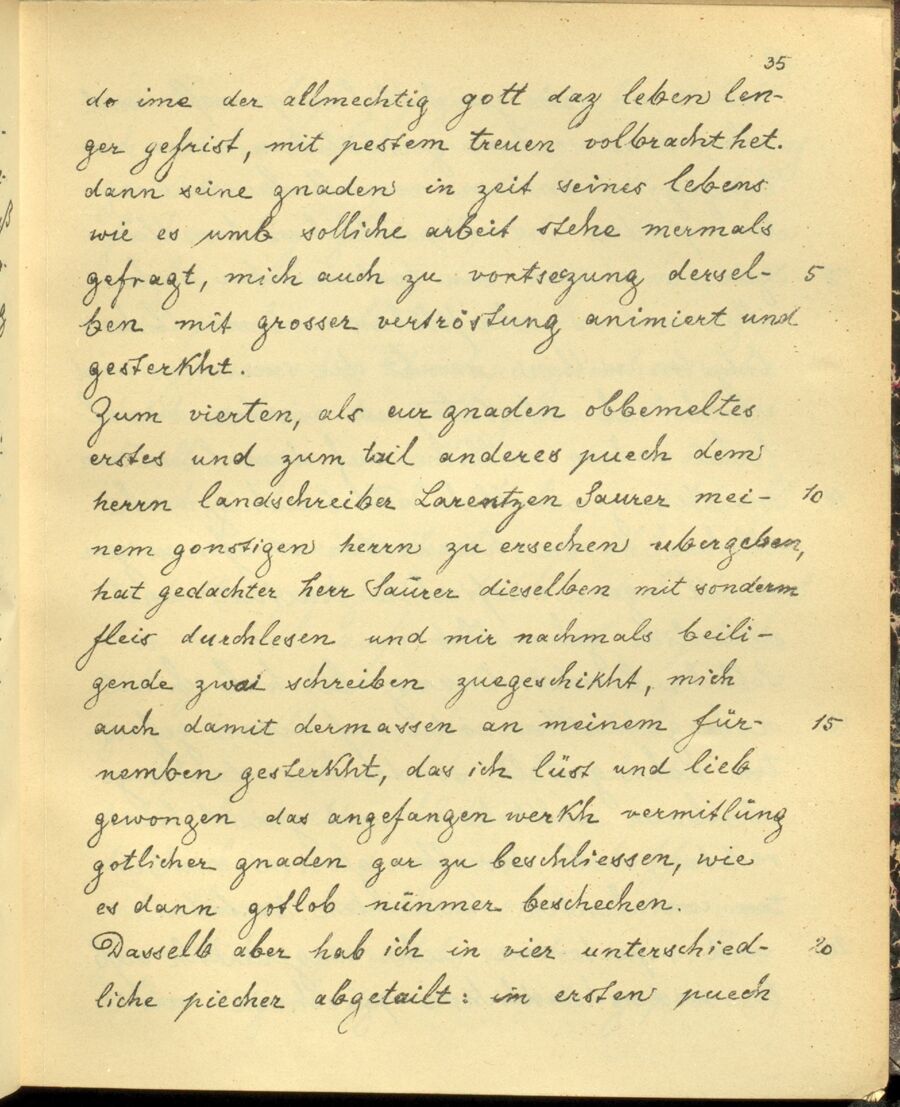 35
do ime der allmechtig gott daz leben len-
ger gefrist, mit pestem treuen volbracht het.
dann seine gnaden in zeit seines lebens
wie es umb solliche arbeit stehe mermals
gefragt, mich auch zu vortsezung dersel- 5
ben mit grosser vertröstung animiert und
gesterkht.
Zum vierten, als eur gnaden obbemeltes
erstes und zum tail anderes puech dem
herrn landschreiber Larentzen Saurer mei- 10
nem gonstigen herrn zu ersechen ubergeben,
hat gedachter herr Saürer dieselben mit sonderm
fleis durchlesen und mir nachmals beili-
gende zwai schreiben zuegeschikht, mich
auch damit dermassen an meinem für- 15
nemben gesterkht, das ich lüst und lieb
gewongen das angefangen werkh vermitlüng
gotlicher gnaden gar zu beschliessen, wie
es dann gotlob nünmer beschechen.
Dasselb aber hab ich in vier unterschied- 20
liche piecher abgetailt: im ersten puech